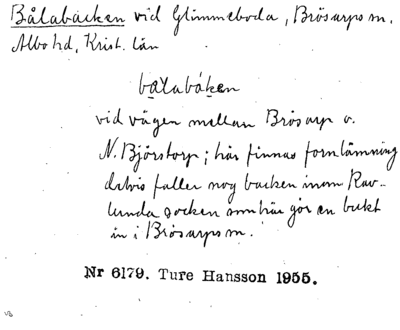 Bålabacken vid Glimmeboda, Brösarps sn.
Albo hd, Krist. län
bålabákən
vid vägen mellan Brösarp o.
N. Björstorp; här finnas fornlämning
delvis faller nog backen inom Rav-
lunda socken som här gör en bukt
in i Brösarps sn.
Nr 6179. Ture Hansson 1955.